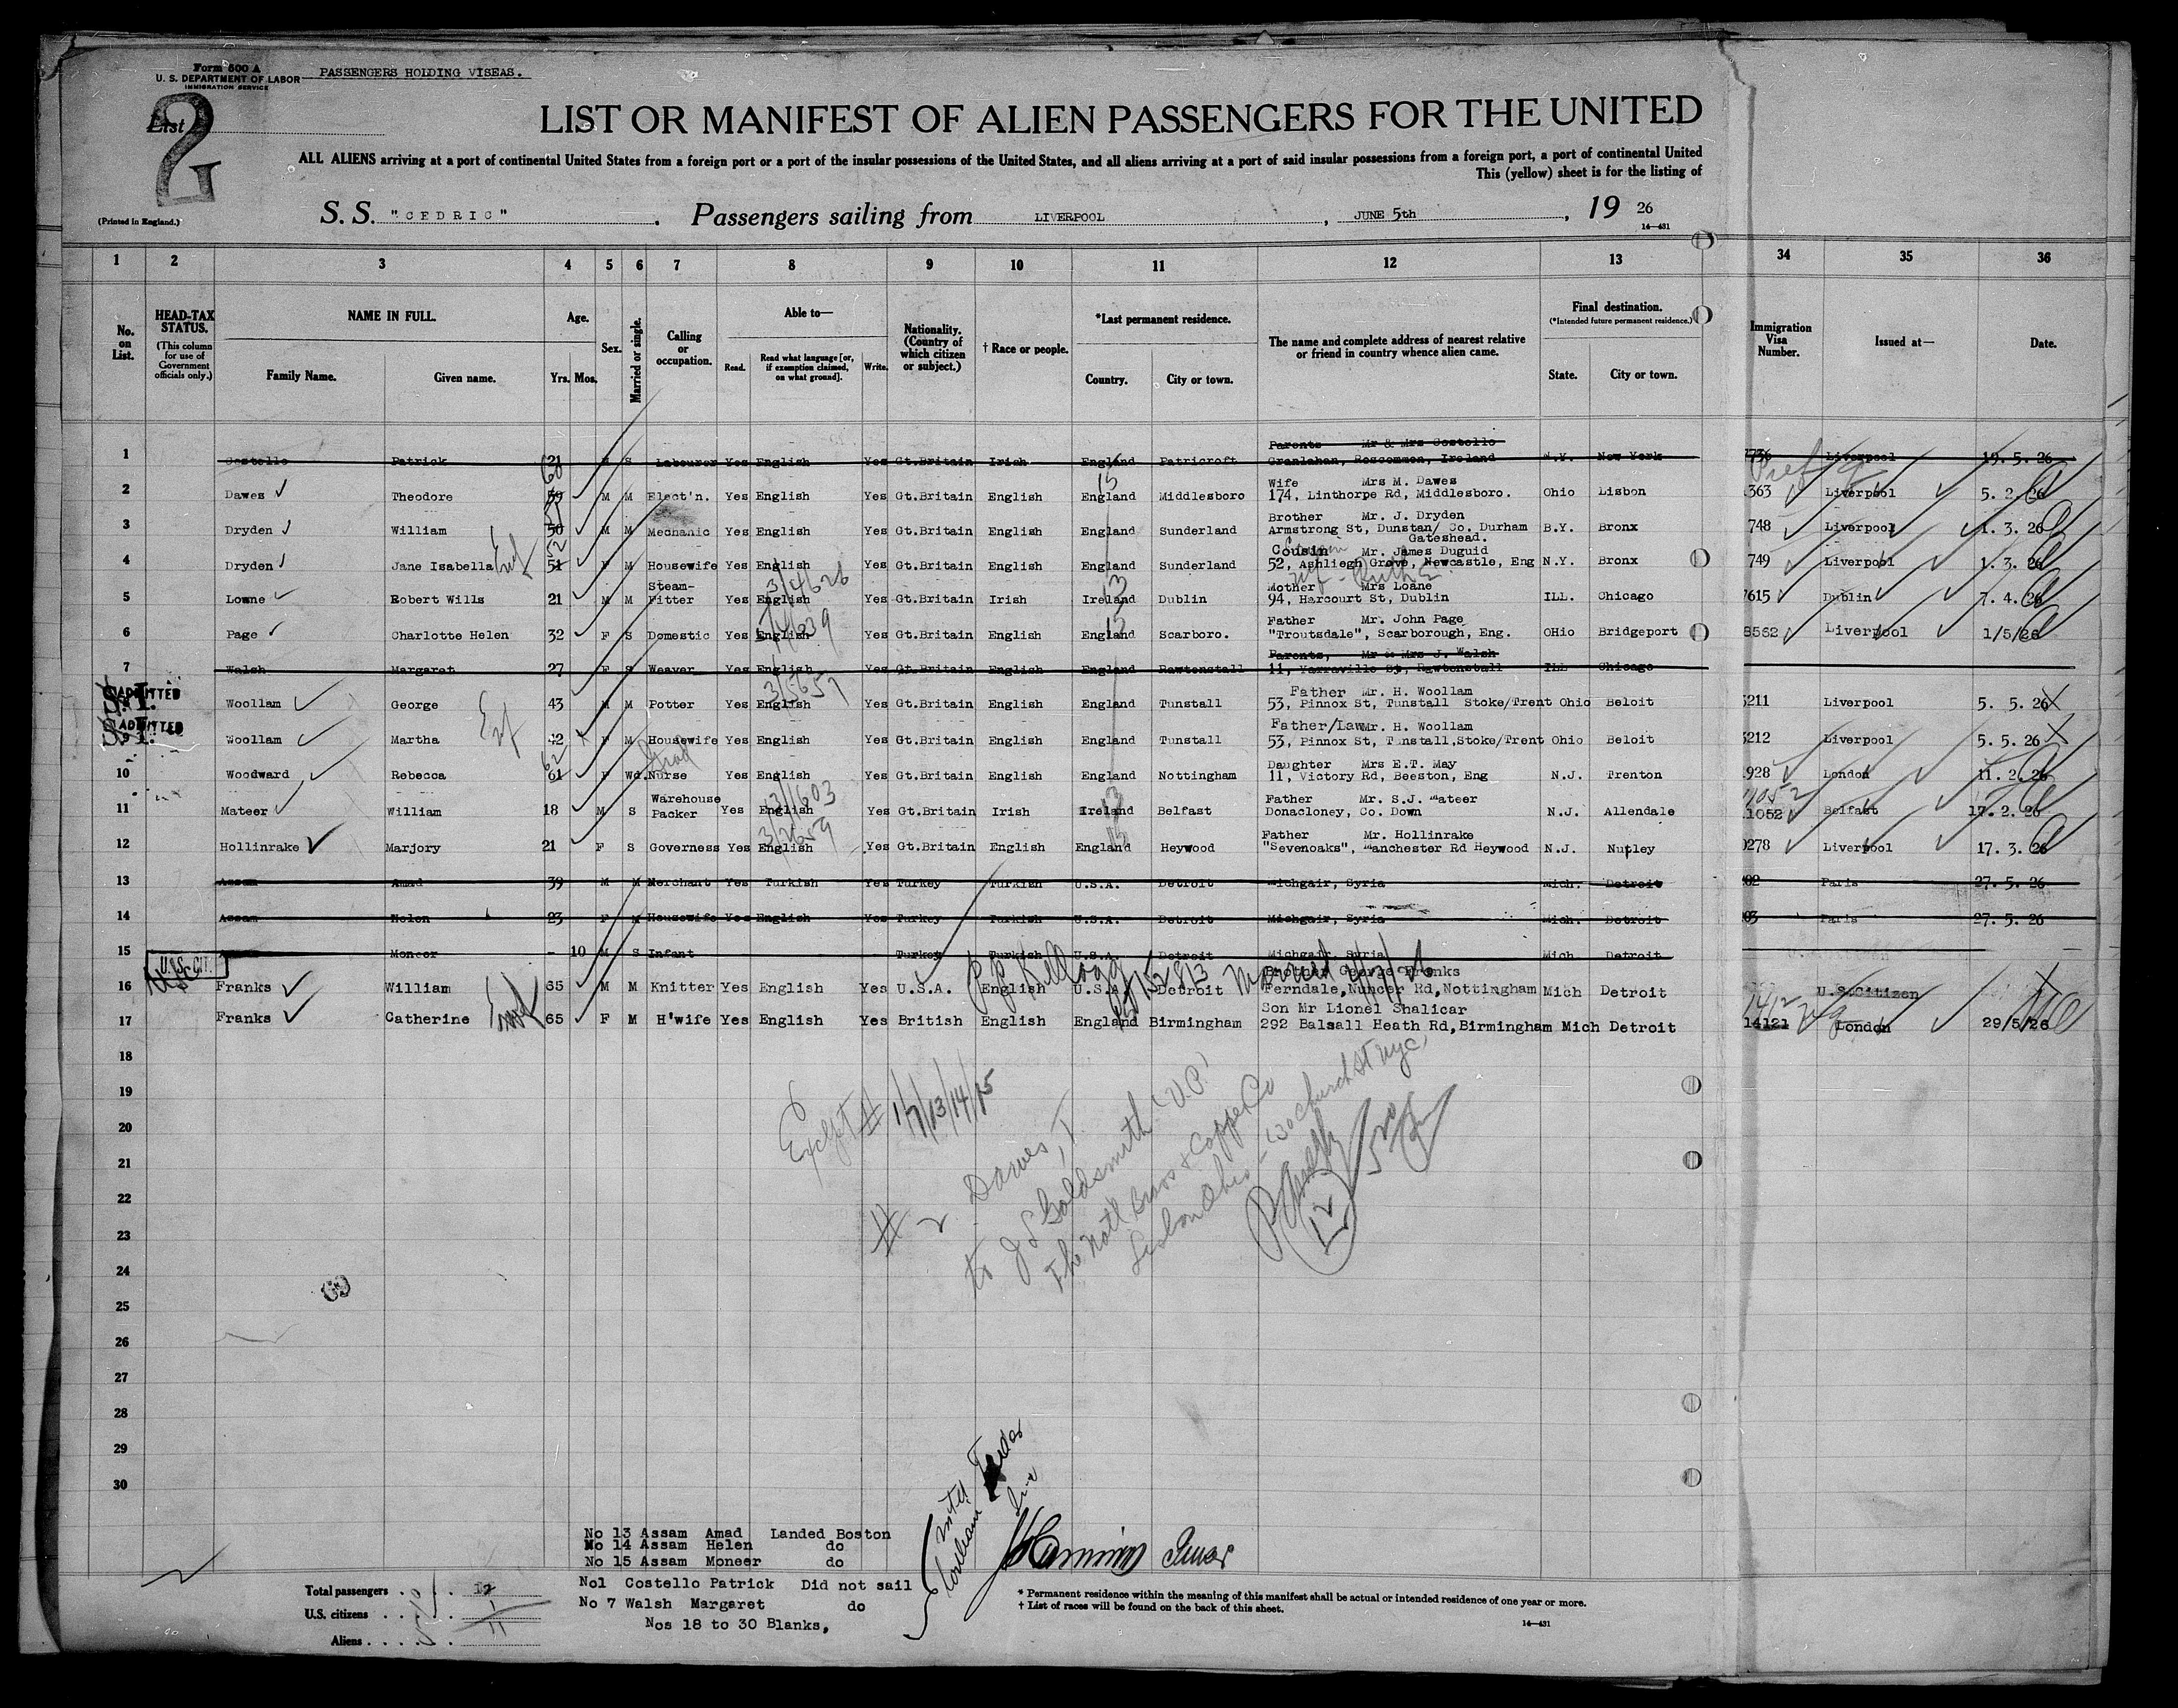 Form 500 A
U. S. DEPARTMENT OF LABOR
IMMIGRATION SERVICE
PASSENGERS HOLDING VISEAS.
List
2
LIST OR MANIFEST OF ALIEN PASSENGERS FOR THE UNITED
ALL ALIENS arriving at a port of continental United States from a foreign port or a port of the insular possessions of the United States, and all aliens arriving at a port of said insular possessions from a foreign port, a port of continental United
This (yellow) sheet is for the listing of
(Printed in England.)
S. S. "CEDRIC". Passengers sailing from LIVERPOOL, JUNE 5th, 19 26
14—431
1 2 3 4 5 6 7 8 9 10 11 12 13 34 35 36
No. on List.
HEAD-TAX STATUS.
(This column for use of Government officials only.)
NAME IN FULL.
Family Name. Given name.
Age.
Yrs. Mos.
Sex.
Married or single.
Calling or occupation.
Able to—
Read. Read what language [or, if exemption claimed, on what ground]. Write.
Nationality. (Country of which citizen or subject.)
† Race or people.
*Last permanent residence.
Country. City or town.
The name and complete address of nearest relative or friend in country whence alien came.
Final destination.
(*Intended future permanent residence.)
State. City or town.
Immigration Visa Number.
Issued at—
Date.
Parents Mr & Mrs Costello
1 Costello Patrick 21 M S Labourer Yes English Yes Gt.Britain Irish England Patricroft Granlahan, Roscommon, Ireland N.Y. New York 7736 Liverpool 19. 5. 26
Wife Mrs M. Dawes
2 Dawes Theodore 59 60 M M Elect'n. Yes English Yes Gt.Britain English England Middlesboro 174, Linthorpe Rd, Middlesboro. Ohio Lisbon 363 Liverpool 5. 2. 26
Brother Mr. J. Dryden
3 Dryden William 50 51 M M Mechanic Yes English Yes Gt.Britain English England Sunderland Armstrong St, Dunstan/ Co. Durham B.Y. Bronx 748 Liverpool 1. 3. 26
Gateshead.
Cousin Mr. James Duguid
4 Dryden Jane Isabella 51 52 F M Housewife Yes English Yes Gt.Britain English England Sunderland 52, Ashliegh Grove, Newcastle, Eng N.Y. Bronx 749 Liverpool 1. 3. 26
Steam- Mother Mrs Loane
5 Lowne Robert Wills 21 M M Fitter Yes English Yes Gt.Britain Irish Ireland Dublin 94, Harcourt St, Dublin ILL. Chicago 7615 Dublin 7. 4. 26
Father Mr. John Page
6 Page Charlotte Helen 32 F S Domestic Yes English Yes Gt.Britain English England Scarboro. "Troutsdale", Scarborough, Eng. OHio Bridgeport 8562 Liverpool 1/5/26
Parents, Mr & Mrs J. Walsh
7 Walsh Margaret 27 F S Weaver Yes English Yes Gt.Britain English England Rawtenstall 11, Yarraville St, Rawtenstall ILL Chicago
ADMITTED
S. I.
Father Mr. H. Woollam
Woollam George 43 M M Potter Yes English Yes Gt.Britain English England Tunstall 53, Pinnox St, Tunstall Stoke/Trent Ohio Beloit 5211 Liverpool 5. 5. 26
ADMITTED
S. I.
Father/Law Mr. H. Woollam
9 Woollam Martha 42 F M Housewife Yes English Yes Gt.Britain English England Tunstall 53, Pinnox St, Tunstall,Stoke/Trent Ohio Beloit 5212 Liverpool 5. 5. 26
Daughter Mrs E.T. May
10 Woodward Rebecca 61 62 F Wd. Nurse Yes English Yes Gt.Britain English England Nottingham 11, Victory Rd, Beeston, Eng N.J. Trenton 928 London 11. 2. 26
Warehouse Father Mr. S.J. Mateer
11 Mateer William 18 M S Packer Yes English Yes Gt.Britain Irish Ireland Belfast Donacloney, Co. Down N.J. Allendale 11052 Belfast 17. 2. 26
Father Mr. Hollinrake
12 Hollinrake Marjory 21 F S Governess Yes English Yes Gt.Britain English England Heywood "Sevenoaks", Manchester Rd Heywood N.J. Nutley 0278 Liverpool 17. 3. 26
13 Assam Amad 39 M M Merchant Yes Turkish Yes Turkey Turkish U.S.A. Detroit Michgair, Syria Mich. Detroit 02 Paris 27. 5. 26
14 Assam Helen 23 F M Housewife Yes English Yes Turkey Turkish U.S.A. Detroit Michgair, Syria Mich. Detroit 03 Paris 27. 5. 26
15 Moneer - 10 M S Infant Turkey Turkish U.S.A. Detroit Michgair, Syria Mich. Detroit
U.S. CIT.
Brother George Franks
16 Franks William 65 M M Knitter Yes English Yes U.S.A. English U.S.A. Detroit Ferndale, Nuncer Rd, Nottingham Mich Detroit U.S.Citizen
Son Mr Lionel Shalicar
17 Franks Catherine 65 F M H'wife Yes English Yes British English England Birmingham 292 Balsall Heath Rd, Birmingham Mich Detroit 14121 London 29/5/26
18
19
20
21
22
23
24
25
26
27
28
29
30
Except # 1/7/13/14/15
# 2 Dawes, T.
to J L Goldsmith (V.P.)
The Natl Brass & Copper Co
Lisbon Ohio - (30 Church St NYC)
69
No 13 Assam Amad Landed Boston
No 14 Assam Helen do
No 15 Assam Moneer do
No1 Costello Patrick Did not sail
No 7 Walsh Margaret do
Nos 18 to 30 Blanks,
Total passengers 12
U.S. citizens 1
Aliens 11
* Permanent residence within the meaning of this manifest shall be actual or intended residence of one year or more.
† List of races will be found on the back of this sheet.
14—431